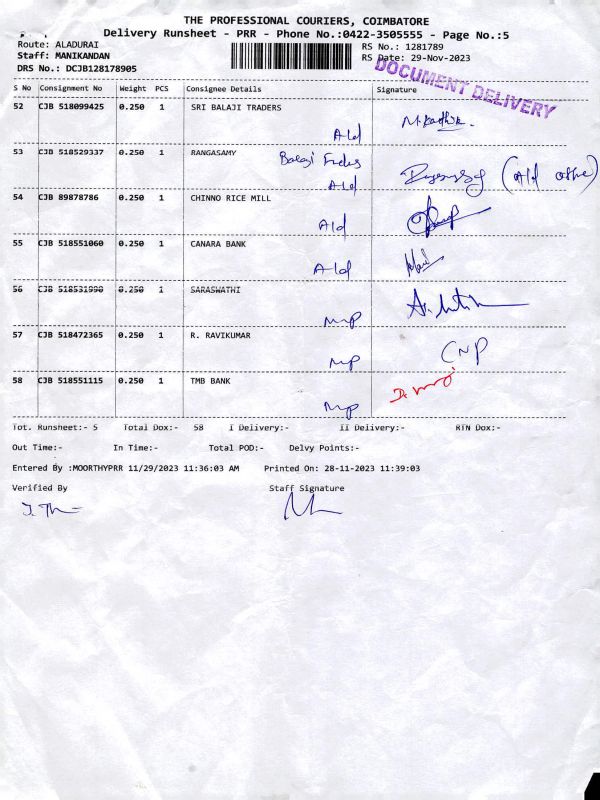 THE PROFESSIONAL COURIERS, COIMBATORE
Delivery Runsheet - PRR - Phone No.:0422-3505555 - Page No.:5
Route: ALADURAI
RS No.: 1281789
Staff: MANIKANDAN
RS Date: 29-Nov-2023
DRS No.: DCJB128178905
DOCUMENT DELIVERY
S No Consignment No Weight PCS Consignee Details Signature
52 CJB 518099425 0.250 1 SRI BALAJI TRADERS
Ald
53 CJB 518529337 0.250 1 RANGASAMY Balaji
Ald
54 CJB 89878786 0.250 1 CHINNO RICE MILL
Ald
55 CJB 518551060 0.250 1 CANARA BANK
Ald
56 CJB 518531990 0.250 1 SARASWATHI
MP
57 CJB 518472365 0.250 1 R. RAVIKUMAR
MP CNP
58 CJB 518551115 0.250 1 TMB BANK
MP
Tot. Runsheet:- 5 Total Dox:- 58 I Delivery:- II Delivery:- RTN Dox:-
Out Time:- In Time:- Total POD:- Delvy Points:-
Entered By :MOORTHYPRR 11/29/2023 11:36:03 AM Printed On: 28-11-2023 11:39:03
Verified By Staff Signature